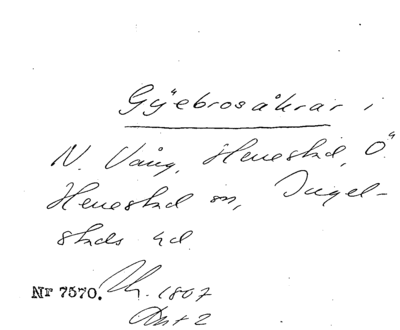 Gÿebrosåkrar i
N. Vång, Henestad, Ö.
Henestad sn, Ingel-
stads hd
Nr 7570. 1807
Akt 2